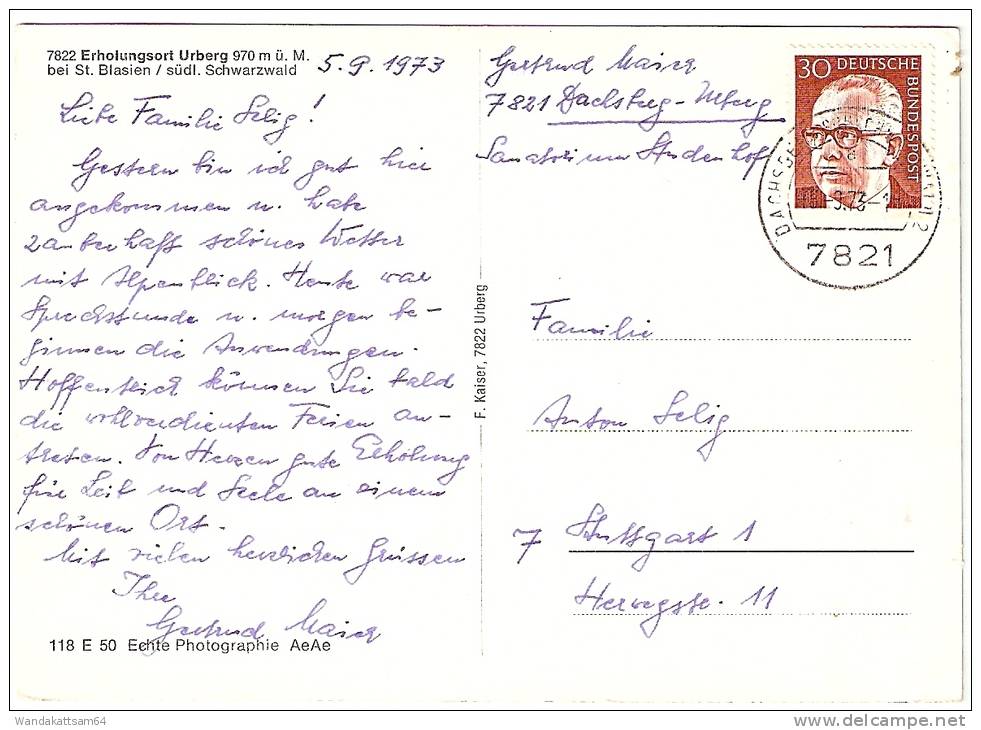 7822 Erholungsort Urberg 970 m ü. M.
bei St. Blasien / südl. Schwarzwald
5.9.1973
Liebe Familie Selig!
Gestern bin ich gut hier
angekommen u. habe
zauberhaft schönes Wetter
mit Alpenblick. Heute war
Sprechstunde u. morgen be-
ginnen die Anwendungen.
Hoffentlich können Sie bald
die wohlverdienten Ferien an-
treten. Von Herzen gute Erholung
für Leib und Seele an einem
schönen Ort.
Mit vielen herzlichen Grüssen
Ihre
Gertrud Maier
118 E 50 Echte Photographie AeAe
F. Kaiser, 7822 Urberg
Gertrud Maier
7821 Dachsberg-Urberg
Sanatorium Studenhof
30 DEUTSCHE BUNDESPOST
7821
Familie
Anton Selig
7 Stuttgart 1
Herwegstr. 11
Wandakattsam64
delcampe.net